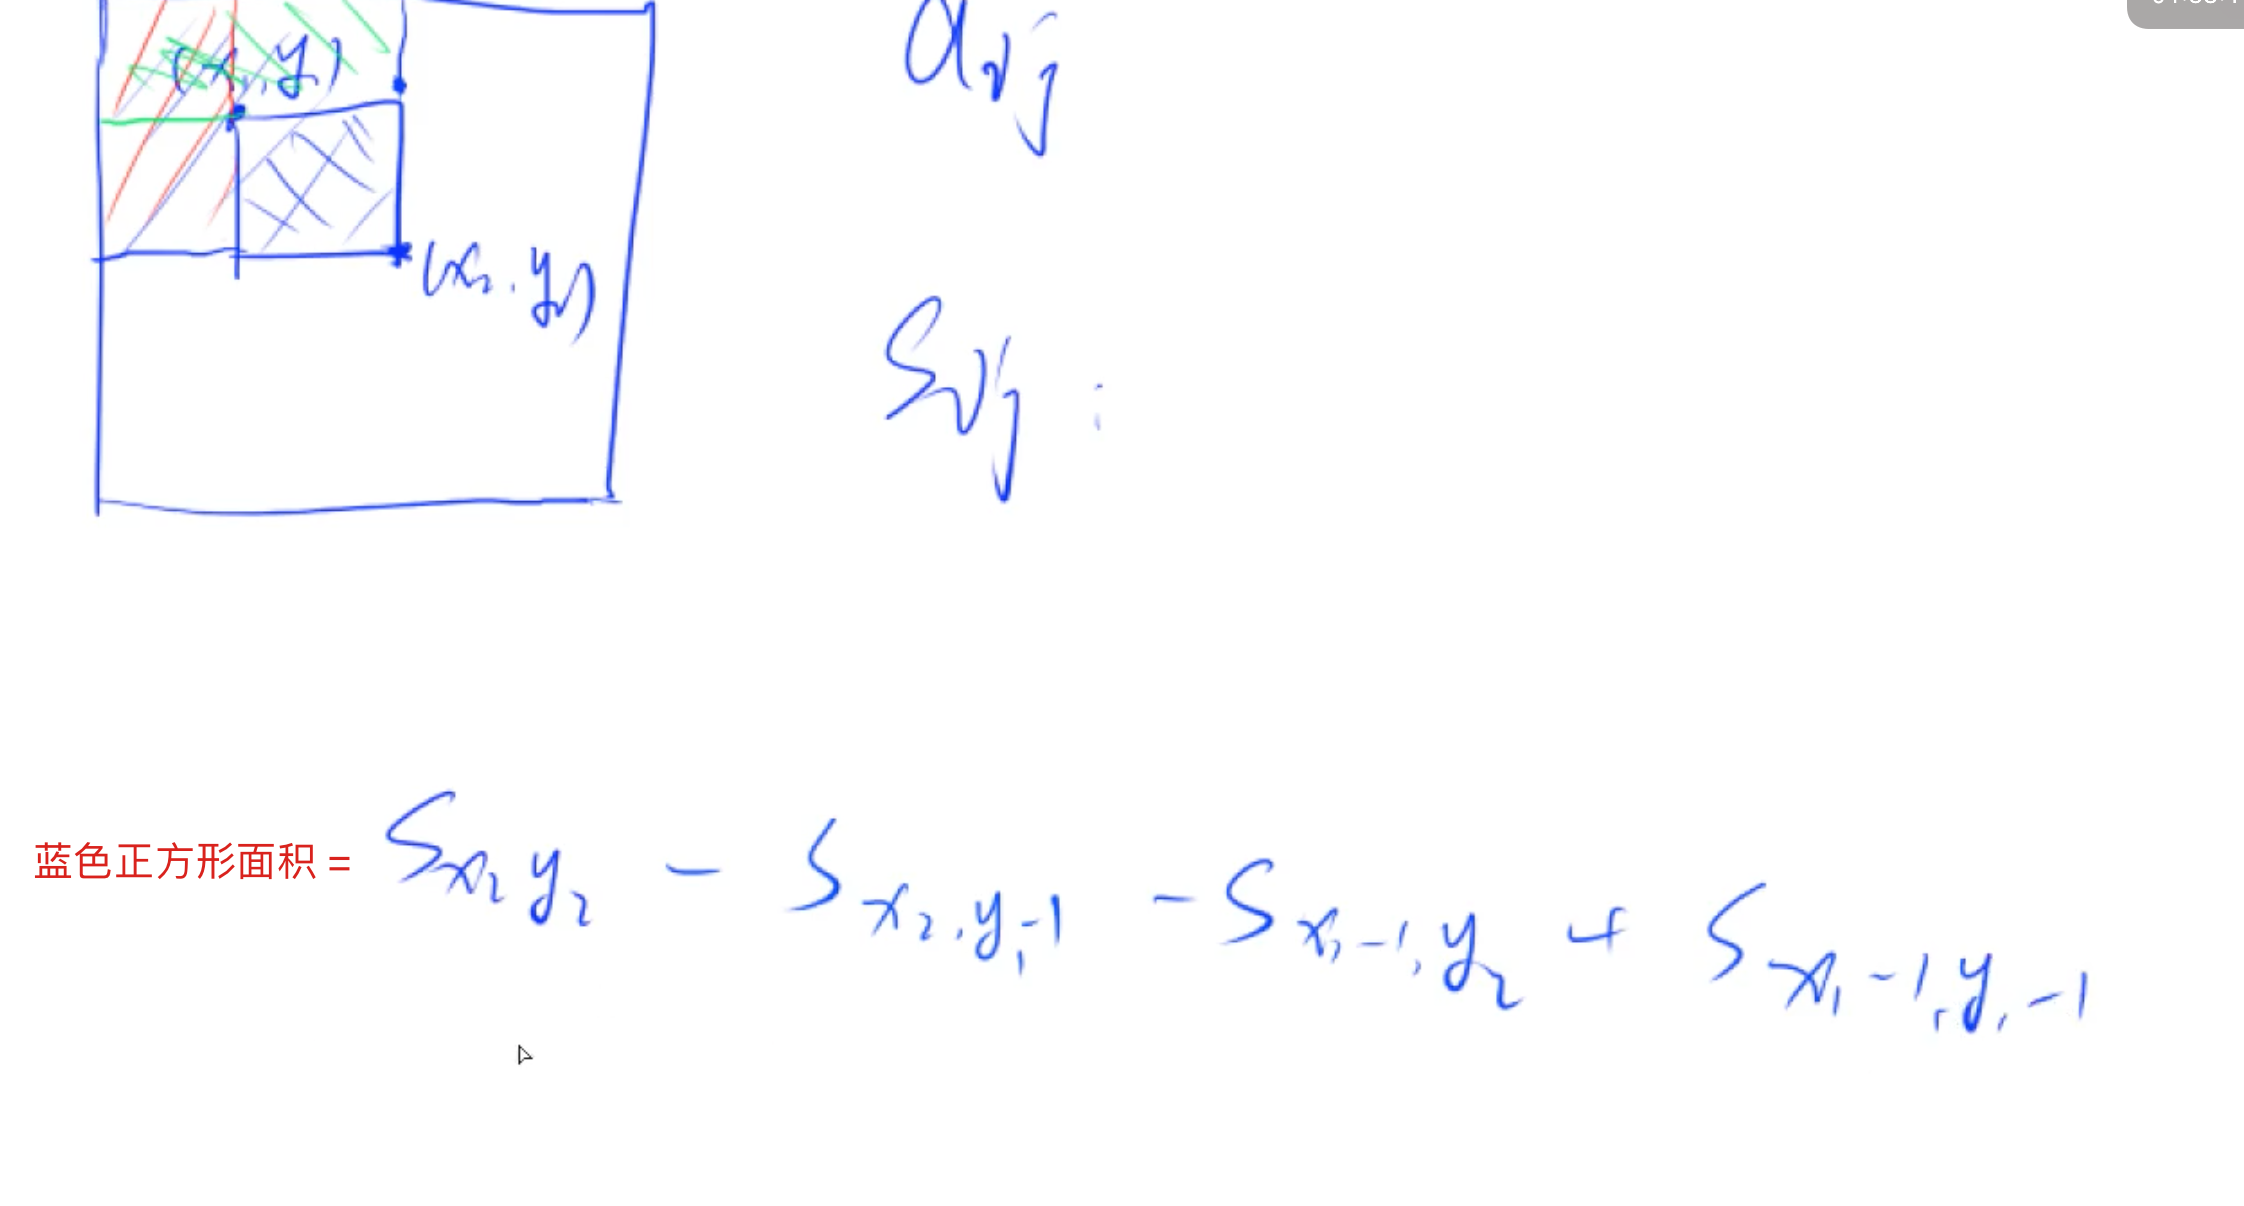 (x₁,y₁)
aᵢⱼ
(x₂,y₂)
Sᵢⱼ :
蓝色正方形面积 = Sx₂y₂ - Sx₂,y₁-1 - Sx₁-1,y₂ + Sx₁-1,y₁-1